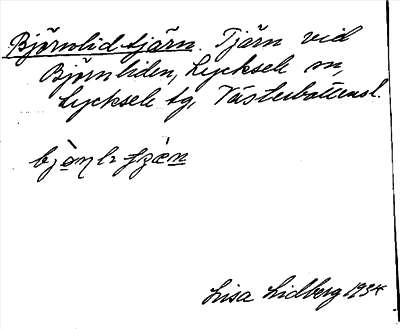 Björnlidtjärn. Tjärn vid
Björnliden, Lycksele sn,
Lycksele tg, Västerbottensl.
Lisa Lidberg 1934